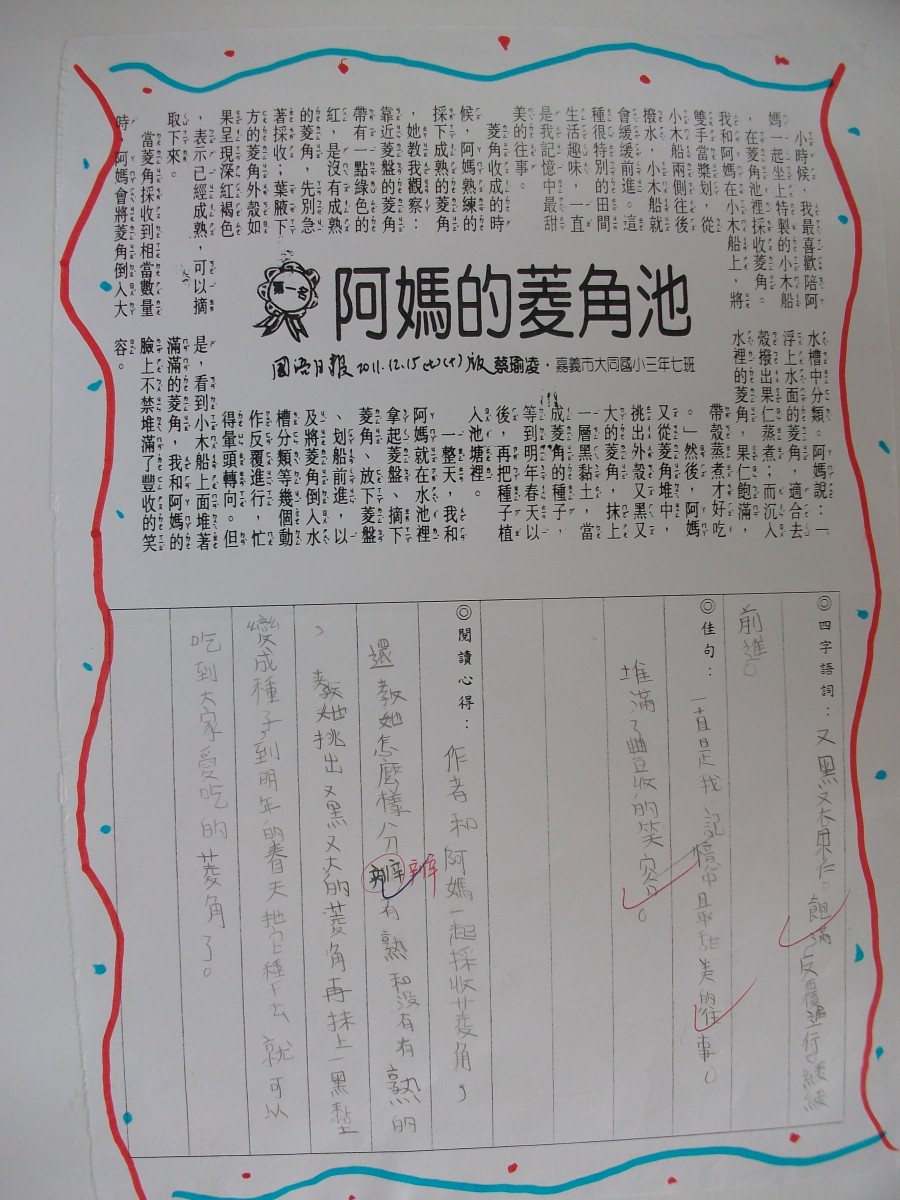 阿媽的菱角池
第一名
國語日報 2011.12.15(七)版 蔡瑜凌・嘉義市大同國小三年七班
小時候，我最喜歡陪阿
媽一起坐上特製的小木船
，在菱角池裡採收菱角。
我和阿媽在小木船上，將
雙手當槳划，從
小木船兩側往後
撥水，小木船就
會緩緩前進。這
種很特別的田間
生活趣味，一直
是我記憶中最甜
美的往事。
菱角收成的時
候，阿媽熟練的
採下成熟的菱角
，她教我觀察：
靠近菱盤的菱角
帶有一點綠色的
紅，是沒有成熟
的菱角，先別急
著採收；葉腋下
方的菱角外殼如
果呈現深紅褐色
，表示已經成熟，可以摘
取下來。
當菱角採收到相當數量
時，阿媽會將菱角倒入大
水槽中分類。阿媽說：「
浮上水面的菱角，適合去
殼撥出果仁蒸煮；而沉入
水裡的菱角，果仁飽滿，
帶殼蒸煮才好吃
。」然後，阿媽
又從菱角堆中，
挑出外殼又黑又
大的菱角，抹上
一層黑黏土，當
成菱角的種子，
等到明年春天以
後，再把種子植
入池塘裡。
一整天，我和
阿媽就在水池裡
拿起菱盤、摘下
菱角、放下菱盤
、划船前進，以
及將菱角倒入水
槽分類等幾個動
作反覆進行，忙
得暈頭轉向。但
是，看到小木船上面堆著
滿滿的菱角，我和阿媽的
臉上不禁堆滿了豐收的笑
容。
◎四字語詞：又黑又 飽滿 反覆進行 緩緩
前進。
◎佳句：一直是我記憶中最甜美的往事。
堆滿了豐收的笑容。
◎閱讀心得：作者和阿媽一起採收菱角，
還教她怎麼樣分辨有熟和沒有有熟的
，教她挑出又黑又大的菱角再抹上一黑黏土
變成種子到明年的春天把它種下去就可以
吃到大家愛吃的菱角了。
辨